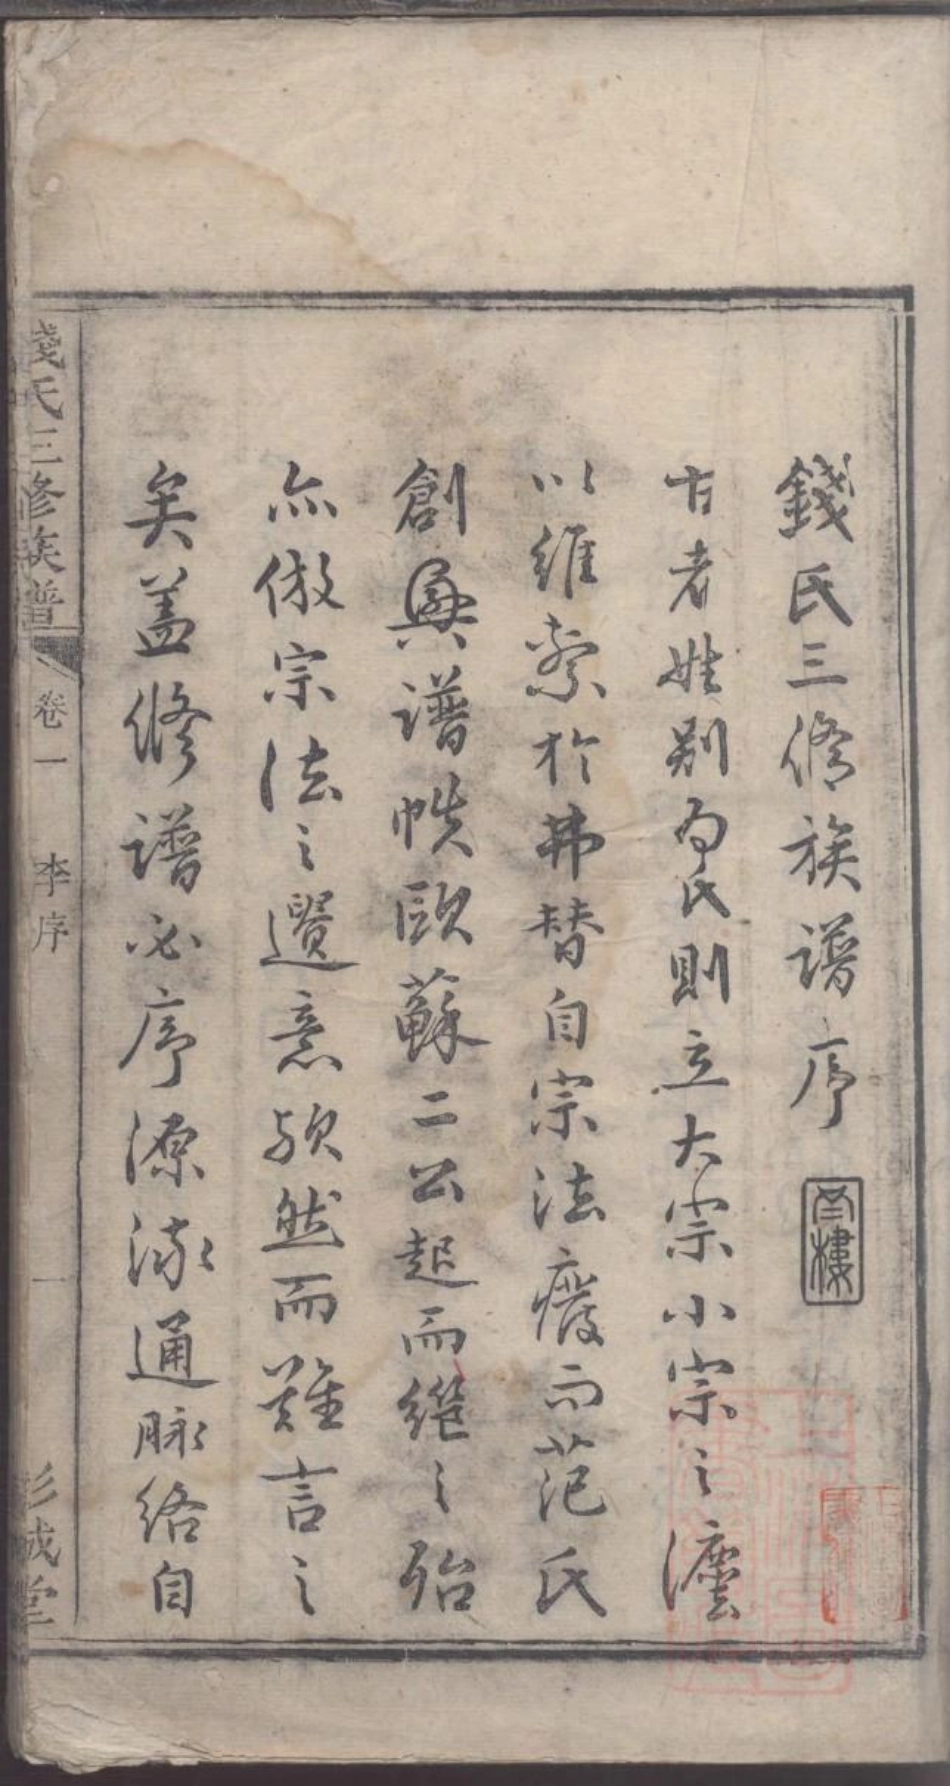 錢氏三修族譜序
古者姓别為氏則立大宗小宗之灋
以維系於弗替自宗法廢而范氏
創興譜帙歐蘇二公起而繼之殆
亦倣宗法之遺意歟然而難言之
矣盖修譜必序源流通脉絡自
錢氏三修族譜
卷一
李序
一
彭城堂